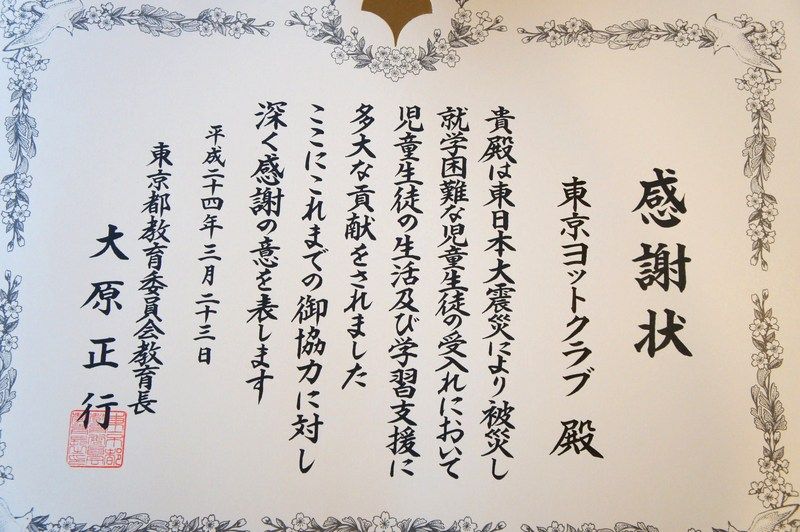 感謝状
東京ヨットクラブ 殿
貴殿は東日本大震災により被災し
就学困難な児童生徒の受入れにおいて
児童生徒の生活及び学習支援に
多大な貢献をされました
ここにこれまでの御協力に対し
深く感謝の意を表します
平成二十四年三月二十三日
東京都教育委員会教育長
大原正行